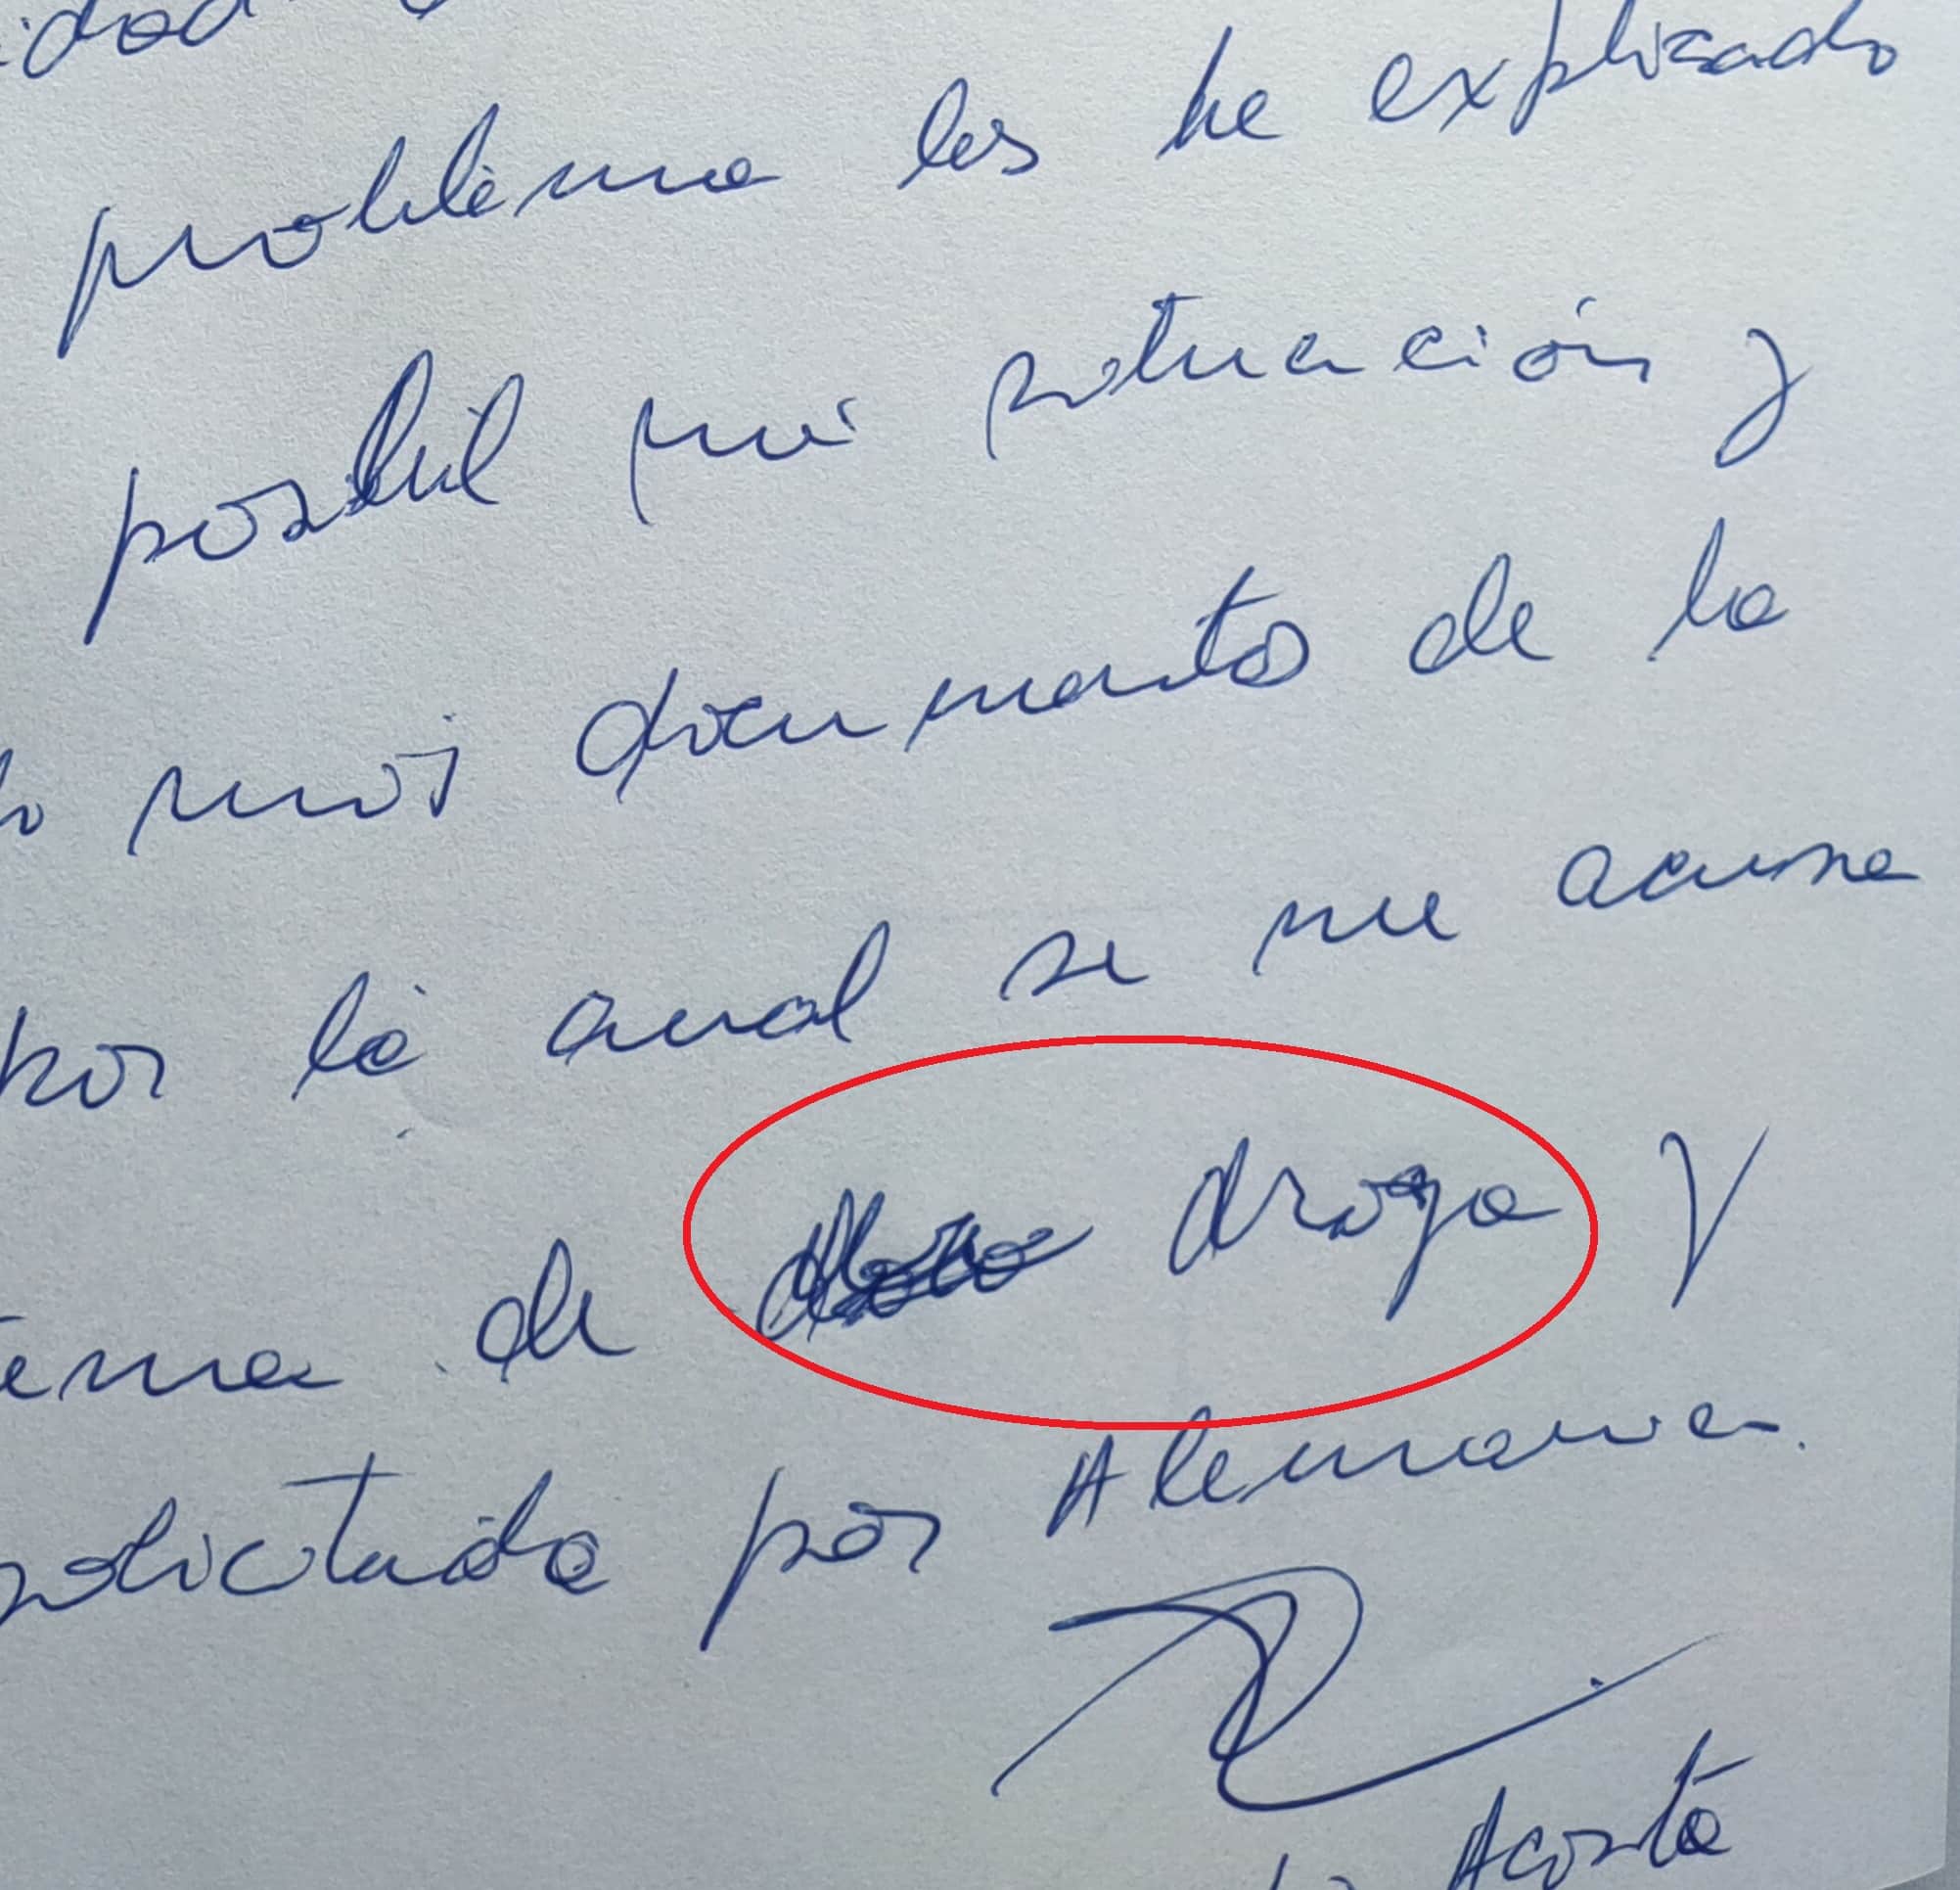 problema les he explicado
mi situación y
mis documentos de la
por la cual se me acusa
de droga y
solicitada por Alemania.
Acosta